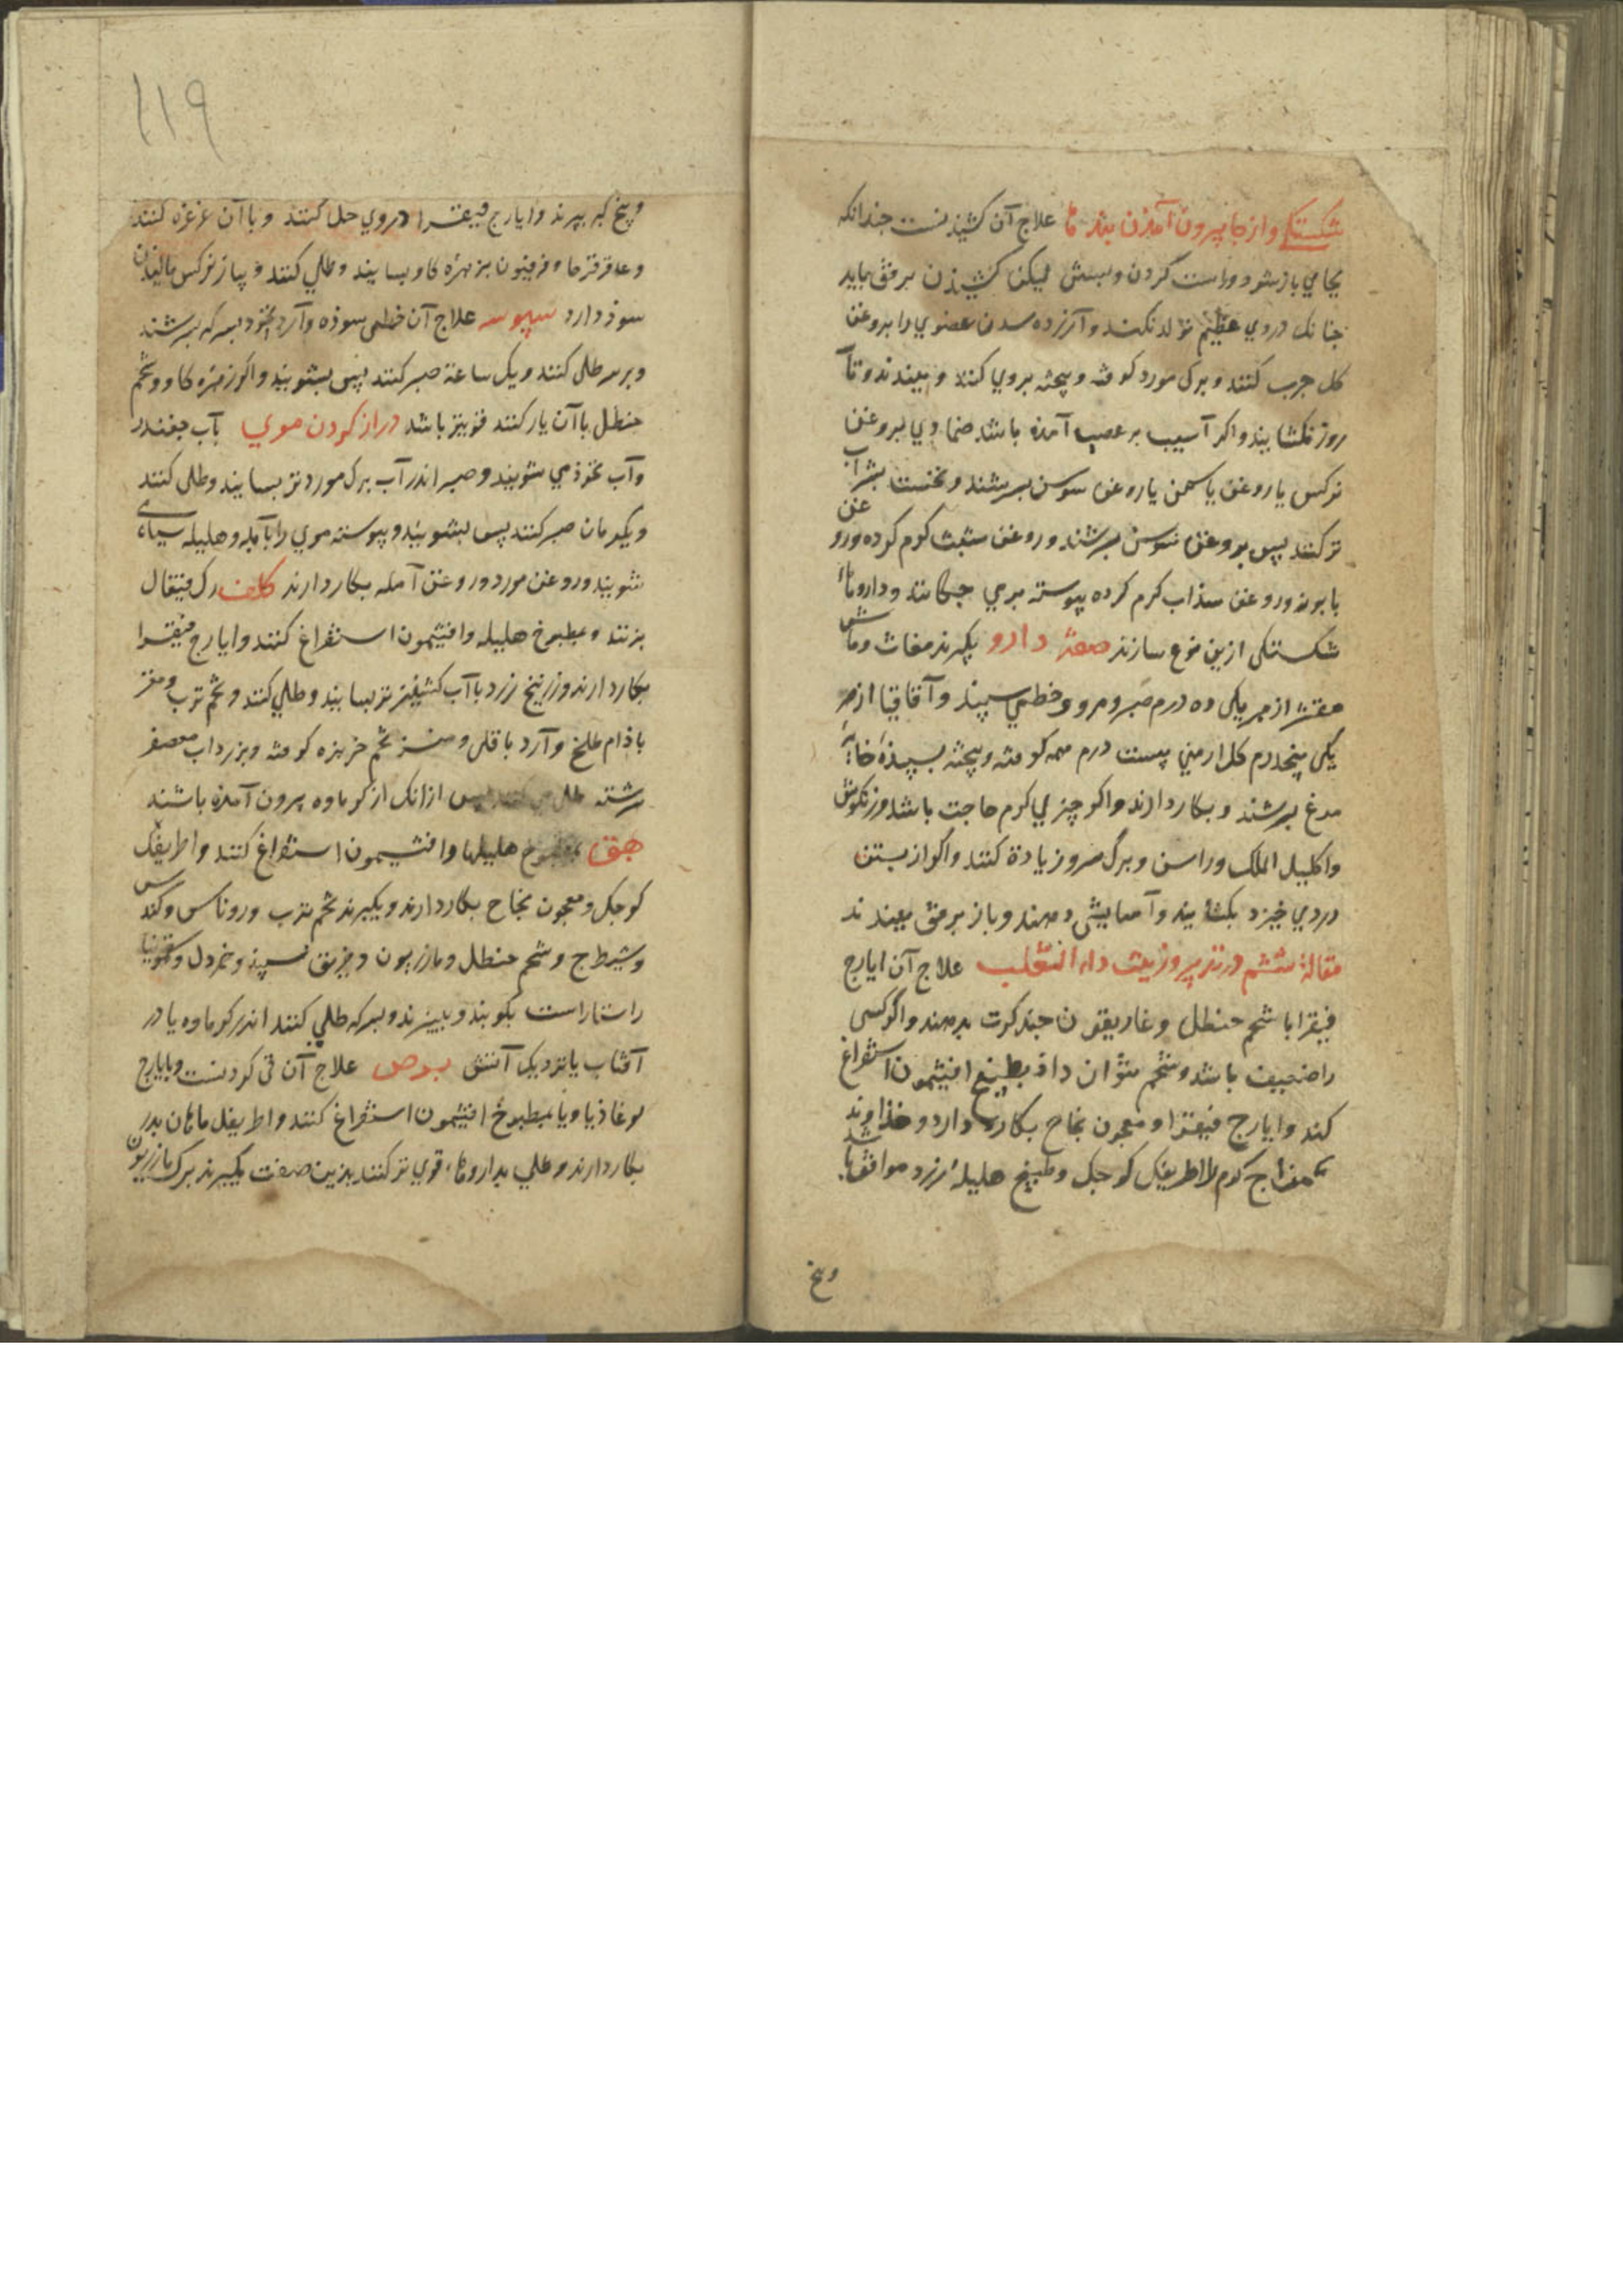 شکستکی و از جا بیرون آمدن بندها علاج آن کشیدنست چندانکه
بجای باز شود و راست کردن و بستن لیکن کشیدن برفق باید
چنانک دردی عظیم تولد نکند و آزرده شدن عضوی را بروغن
کل چرب کنند و برک مورد کوفته و پیخته بروی کنند و ببندند و تا
روز نکشایند و اکر آسیب بر عصب آمده باشد ضمادی بروغن
نرکس یا روغن یاسمن یا روغن سوسن بسرشند و نخست بشراب
تر کنند پس بروغن سوسن بسرشند و روغن شبت کرم کرده و روغن
بابونه و روغن سذاب کرم کرده پیوسته برمی چکانند و داروهاء
شکستکی ازین نوع سازند صفة دارو بکیرند مغاث و ماش
مقشر از هر یکی ده درم صبر و مر و خطمی سپید و آقاقیا از هر
یکی پنجدرم کل ارمنی بیست درم همه کوفته و پیخته بسپیدهٔ خایهٔ
مرغ بسرشند و بکار دارند و اکر چیزی کرم حاجت باشد مرزنکوش
و اکلیل الملک و راسن و برک سرو زیادة کنند و اکر از بستن
دردی خیزد بکشایند و آسایش دهند و باز برفق ببندند
مقالهٔ ششم در تدبیر و زینت داء الثعلب علاج آن ایارج
فیقرا با شحم حنظل و غاریقون چند کرت بدهند و اکر کسی
را ضعیف باشد و شحم نتوان داد بطبیخ افتیمون استفراغ
کند و ایارج فیقرا و معجون نجاح بکار دارد و خداوند
مزاج کرم را اطریفل کوچک و طبیخ هلیلهٔ زرد موافق باشد
وبیخ
۱۱۹
وبیخ کبر بپزند و ایارج فیقرا دروی حل کنند و با آن غرغره کنند
و عاقرقرحا و فرفیون بزهرهٔ کاو بسایند و طلی کنند و پیاز نرکس مالیدن
سود دارد سبوسه علاج آن خطمی سوده و آرد نخود بسرکه بسرشند
و بر سر طلی کنند و یک ساعة صبر کنند پس بشویند و اکر زهرهٔ کاو و تخم
حنظل با آن یار کنند قوی‌تر باشد دراز کردن موی بآب چغندر
و آب نخود می شویند و صبر اندر آب برک مورد تر بسایند و طلی کنند
و یکزمان صبر کنند پس بشویند و پیوسته موی را بآمله و هلیله سیاه
شویند و روغن مورد و روغن آمله بکار دارند کلف رک قیفال
بزنند و بمطبوخ هلیله و افتیمون استفراغ کنند و ایارج فیقرا
بکار دارند و زرنیخ زرد با آب کشنیز تر بسایند و طلی کنند و تخم ترب و مغز
بادام طلخ و آرد باقلی و مغز تخم خربزه کوفته و بزرداب معصفر
سرشته طلی کنند پس ازانک از کرماوه بیرون آمده باشند
بهق بمطبوخ هلیلها و افتیمون استفراغ کنند و اطریفل
کوچک و معجون نجاح بکار دارند و بکیرند تخم ترب و روناس و کندس
و شیطرج و شحم حنظل و مازریون و خربق سپید و خردل و سقمونیا
راستاراست بکوبند و ببیزند و بسرکه طلی کنند اندر کرماوه یا در
آفتاب یا نزدیک آتش برص علاج آن قی کردنست و بایارج
لوغاذیا و یا بمطبوخ افتیمون استفراغ کنند و اطریفل
بکار دارند و طلی بداروهاء قوی تر کنند بدین صفت بکیرند برک مازریون